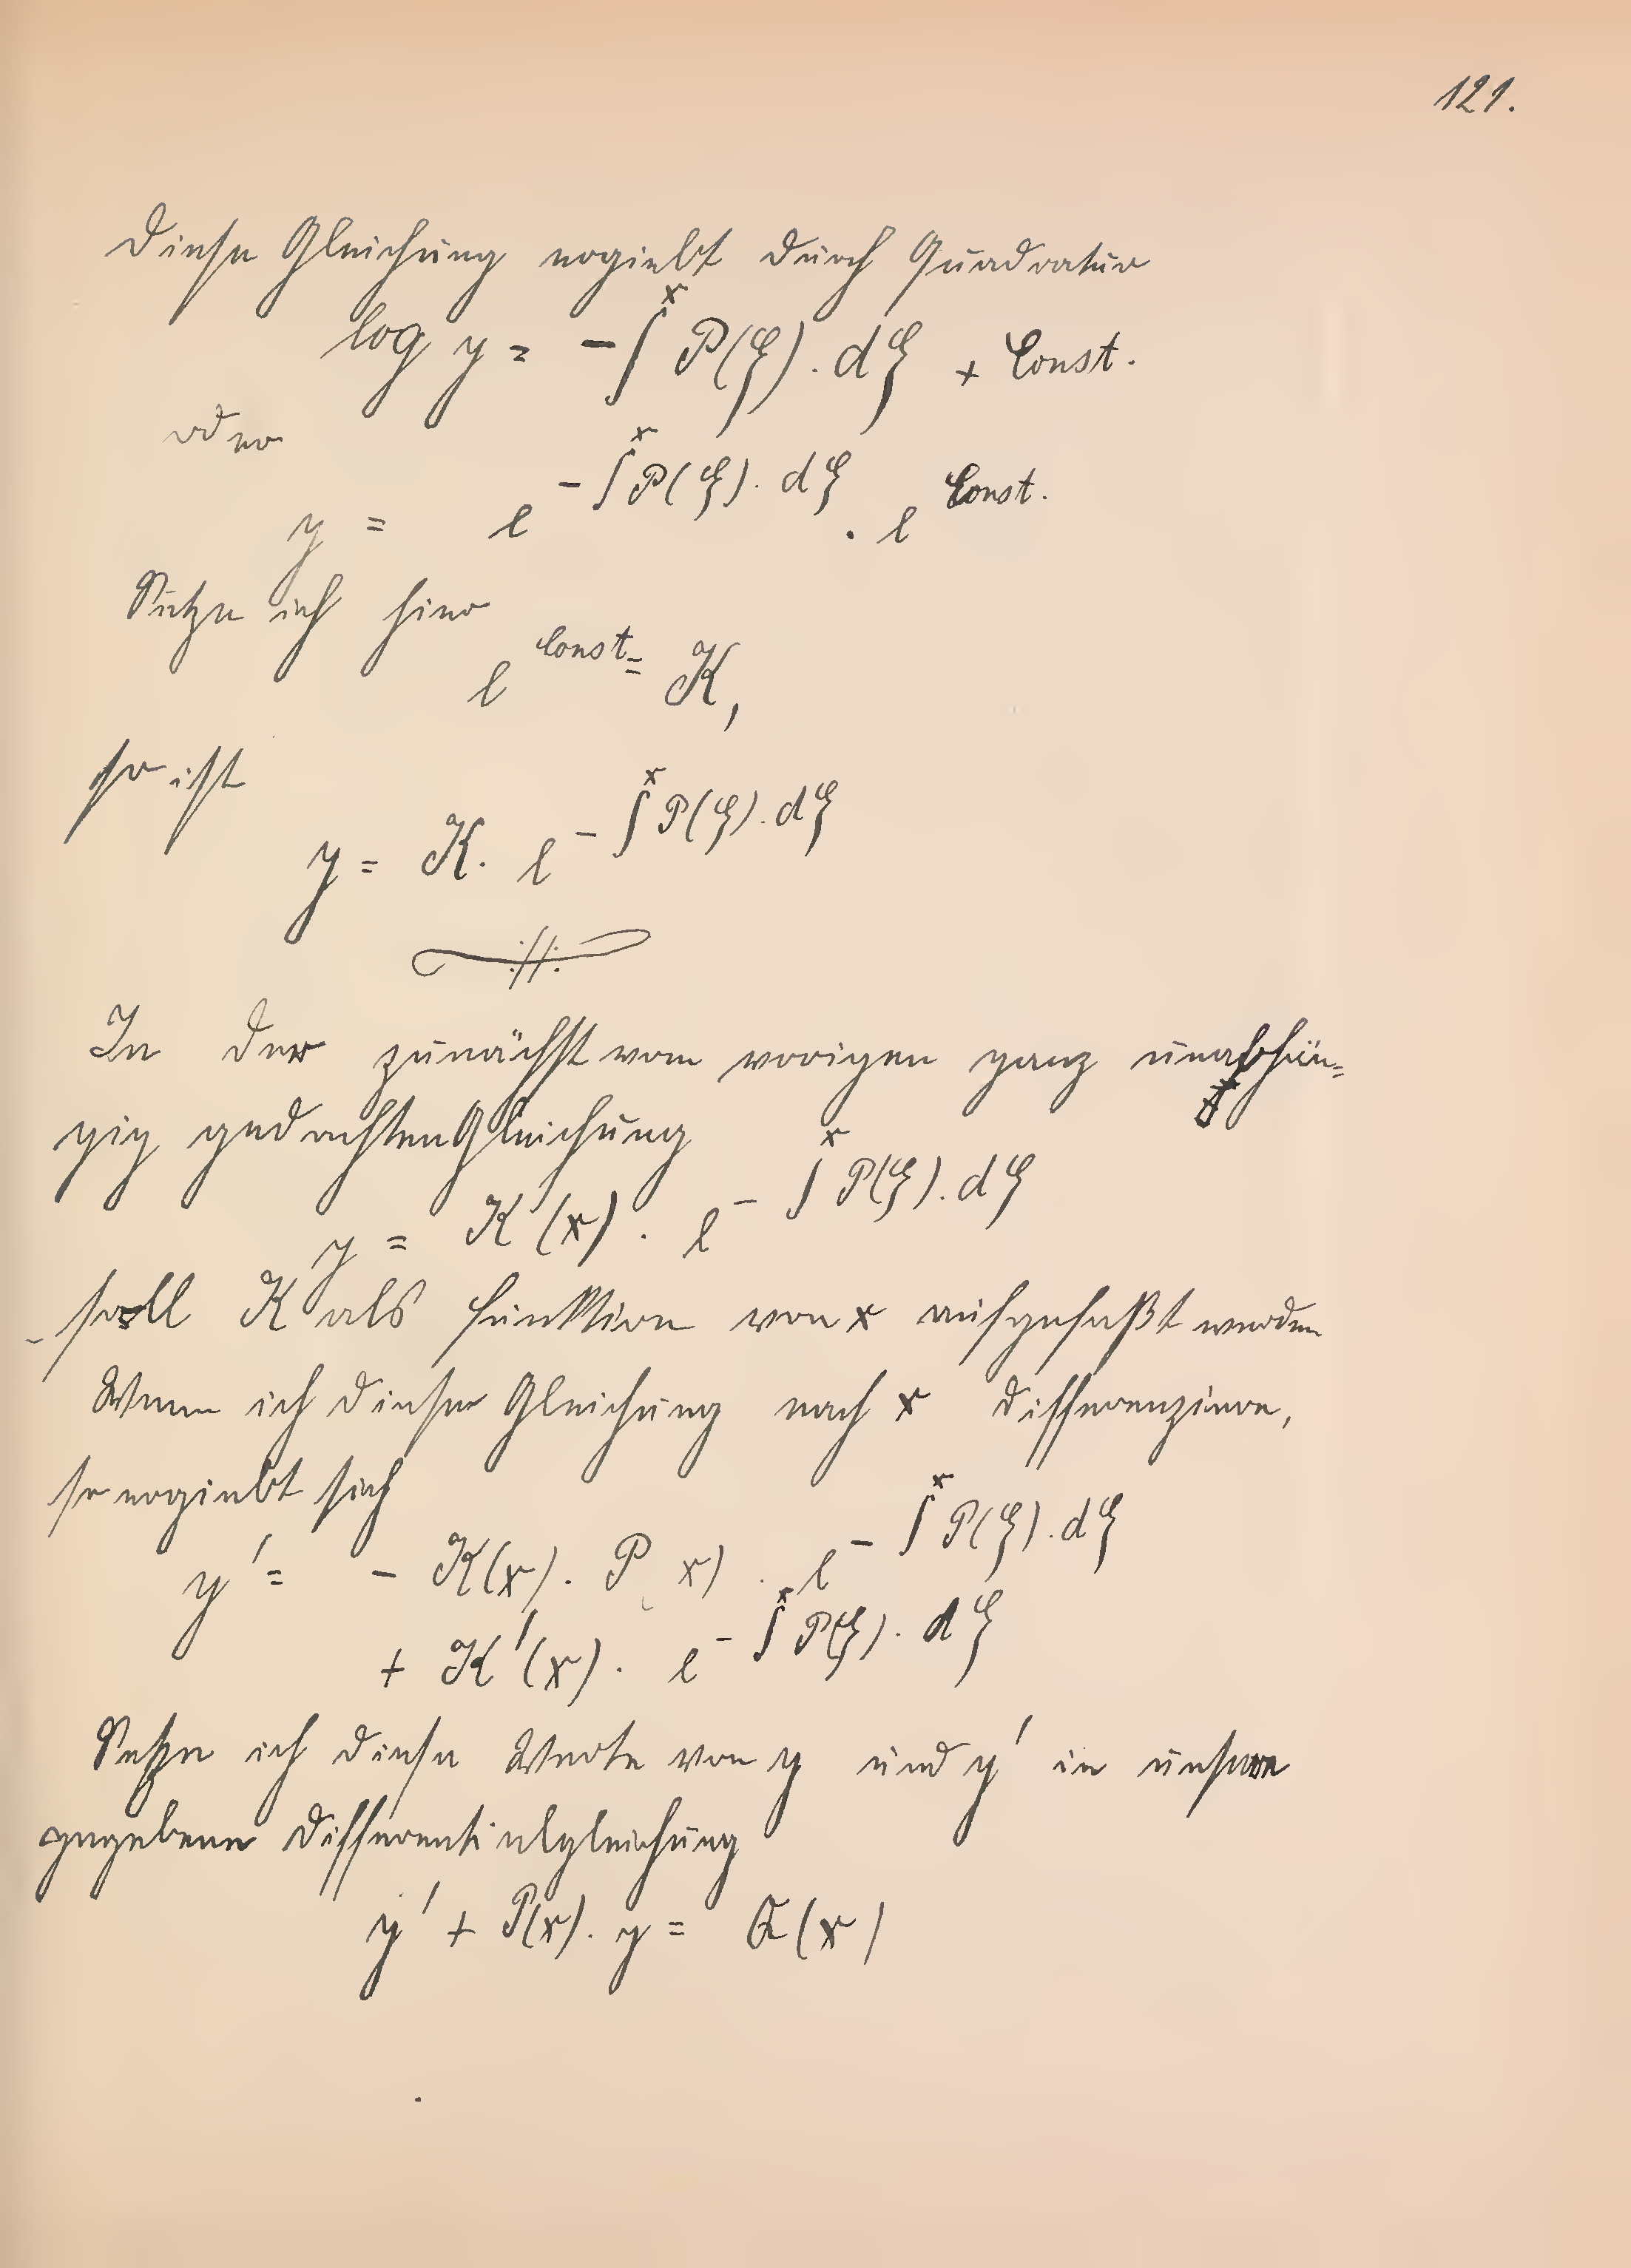 121.
Diese Gleichung ergiebt durch Quadratur
log y = - ∫^x P(ξ). dξ + Const.
oder
y = e^{- ∫^x P(ξ). dξ} . e^{Const.}
Setze ich hier
e^{Const} = K,
so ist
y = K. e^{- ∫^x P(ξ). dξ}
In der zunächst vom vorigen ganz unabhän=
gig gedachten Gleichung
y = K(x). e^{- ∫^x P(ξ). dξ}
soll K als Funktion von x aufgefaßt werden
Wenn ich diese Gleichung nach x differenziere,
so ergiebt sich
y' = - K(x). P(x) . e^{- ∫^x P(ξ). dξ}
+ K'(x). e^{- ∫^x P(ξ). dξ}
Setze ich diese Werte von y und y' in unsere
gegebene Differentialgleichung
y' + P(x). y = Q(x)